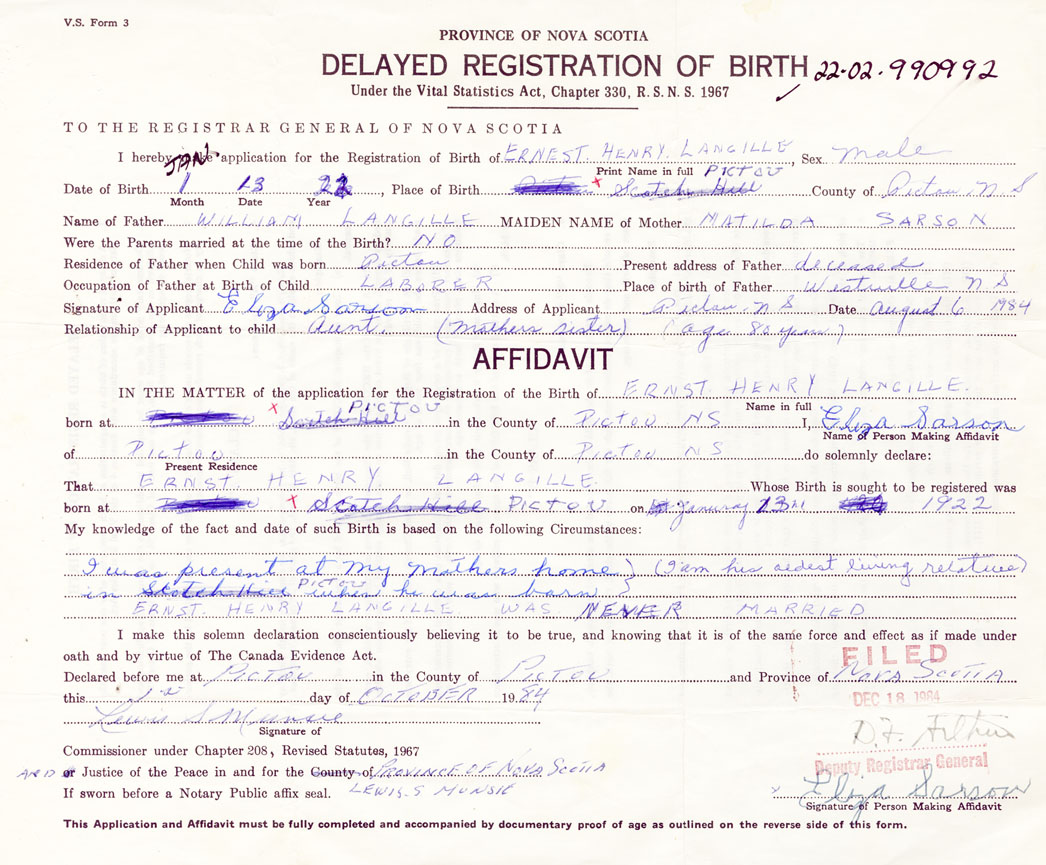 V.S. Form 3
PROVINCE OF NOVA SCOTIA
DELAYED REGISTRATION OF BIRTH 22-02-990992
Under the Vital Statistics Act, Chapter 330, R.S.N.S. 1967
TO THE REGISTRAR GENERAL OF NOVA SCOTIA
I hereby make application for the Registration of Birth of ERNEST HENRY LANGILLE, Sex male
JAN Print Name in full PICTOU
Date of Birth 1 13 22, Place of Birth Scotch Hill County of Pictou N S
Month Date Year
Name of Father WILLIAM LANGILLE MAIDEN NAME of Mother MATILDA SARSON
Were the Parents married at the time of the Birth? NO
Residence of Father when Child was born Pictou Present address of Father deceased
Occupation of Father at Birth of Child LABORER Place of birth of Father Westville N S
Signature of Applicant Eliza Sarson Address of Applicant Pictou N S Date August 6 1984
Relationship of Applicant to child Aunt. (Mothers sister) (age 80 years)
AFFIDAVIT
IN THE MATTER of the application for the Registration of the Birth of ERNST HENRY LANGILLE.
PICTOU Name in full
born at x Scotch Hill in the County of PICTOU NS I, Eliza Sarson
Name of Person Making Affidavit
of PICTOU in the County of PICTOU NS do solemnly declare:
Present Residence
That ERNST HENRY LANGILLE Whose Birth is sought to be registered was
born at x Scotch Hill PICTOU on January 13TH 1922
My knowledge of the fact and date of such Birth is based on the following Circumstances:
I was present at my mothers home) (I am his oldest living relative)
in Scotch Hill PICTOU when he was born)
ERNST HENRY LANGILLE WAS NEVER MARRIED
I make this solemn declaration conscientiously believing it to be true, and knowing that it is of the same force and effect as if made under
oath and by virtue of The Canada Evidence Act.
FILED
Declared before me at PICTOU in the County of PICTOU and Province of NOVA SCOTIA
this day of OCTOBER 1984
DEC 18 1984
Lewis S Munsie
Signature of
Commissioner under Chapter 208, Revised Statutes, 1967
Deputy Registrar General
AND or Justice of the Peace in and for the County of PROVINCE OF NOVA SCOTIA
If sworn before a Notary Public affix seal. LEWIS. S MUNSIE
x Eliza Sarson
Signature of Person Making Affidavit
This Application and Affidavit must be fully completed and accompanied by documentary proof of age as outlined on the reverse side of this form.